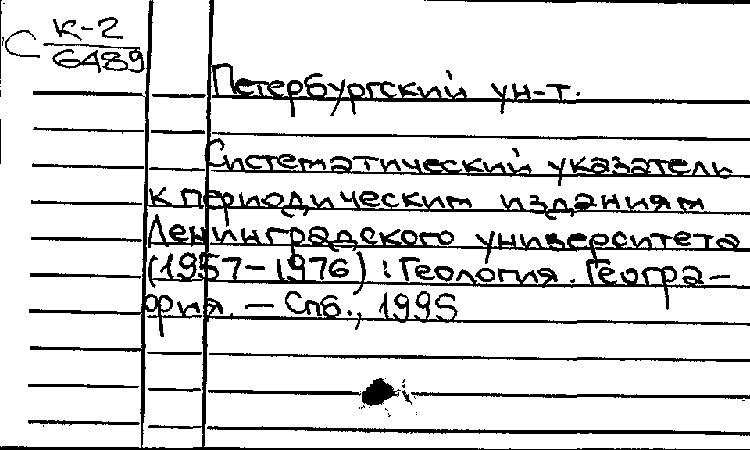 С К-2
6489
Петербургский ун-т.
Систематический указатель
к периодическим изданиям
Ленинградского университета
(1957-1976): Геология. Геогра-
фия. - Спб., 1995